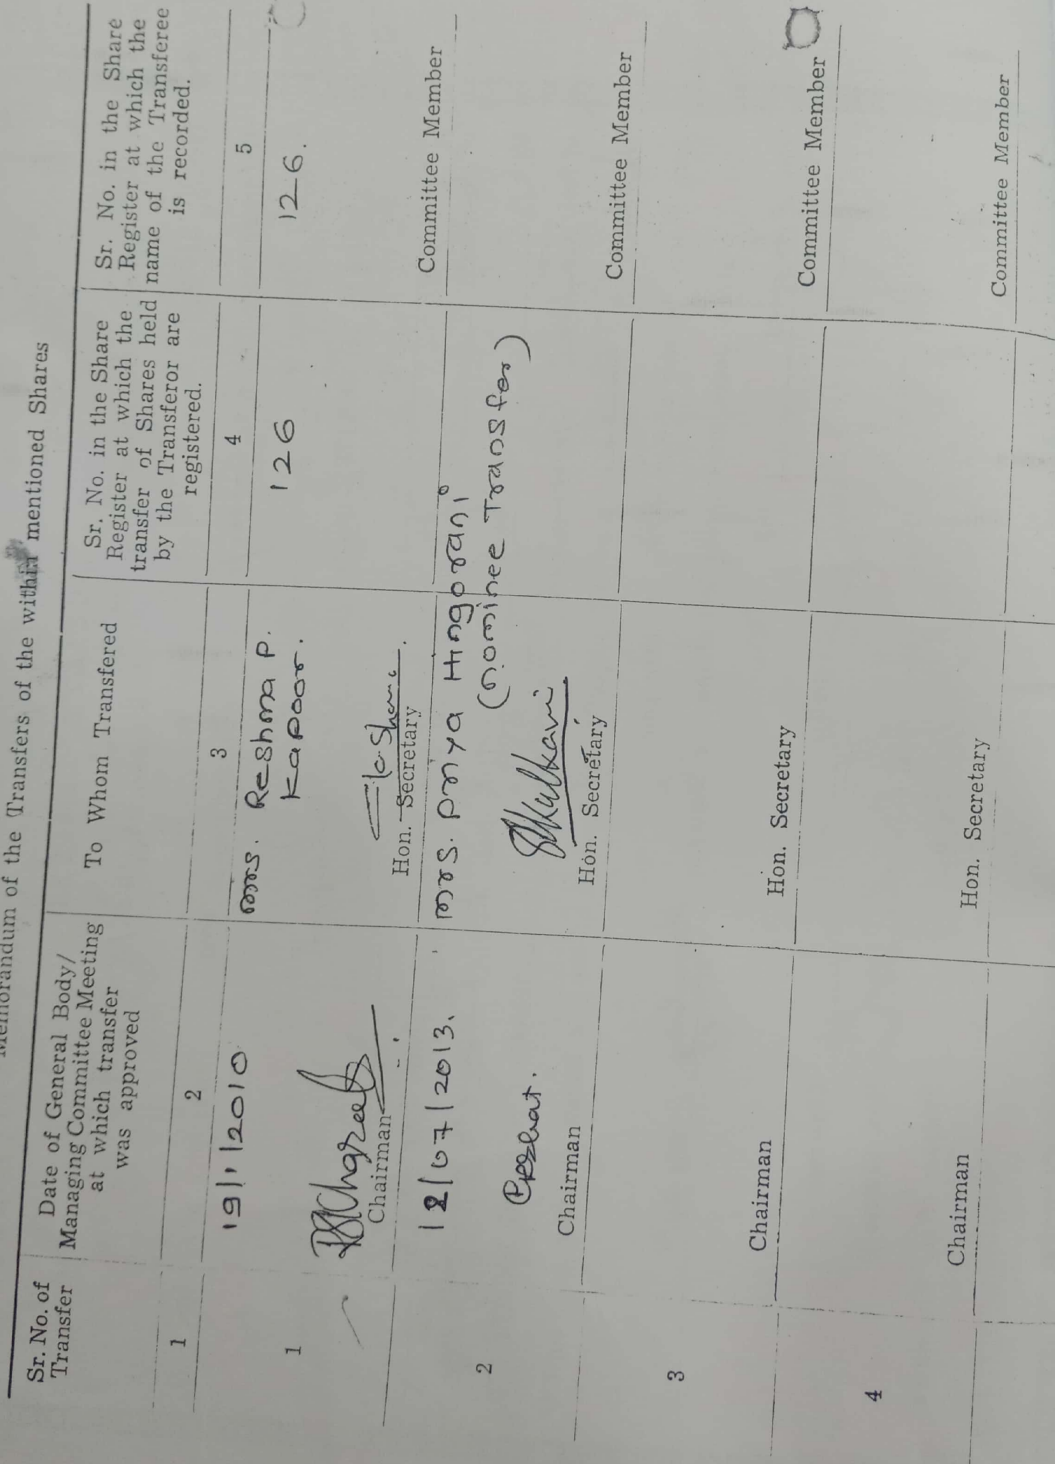 Memorandum of the Transfers of the within mentioned Shares
Sr. No. of
Transfer
Date of General Body/
Managing Committee Meeting
at which transfer
was approved
To Whom Transfered
Sr. No. in the Share
Register at which the
transfer of Shares held
by the Transferor are
registered.
Sr. No. in the Share
Register at which the
name of the Transferee
is recorded.
1
2
3
4
5
1
19/1/2010
mrs. Reshma P.
Kapoor.
126
126.
Chairman
Hon. Secretary
Committee Member
2
18/07/2013.
mrs. Priya Hingorani
(nominee Transfer)
Chairman
Hon. Secretary
Committee Member
3
Chairman
Hon. Secretary
Committee Member
4
Chairman
Hon. Secretary
Committee Member